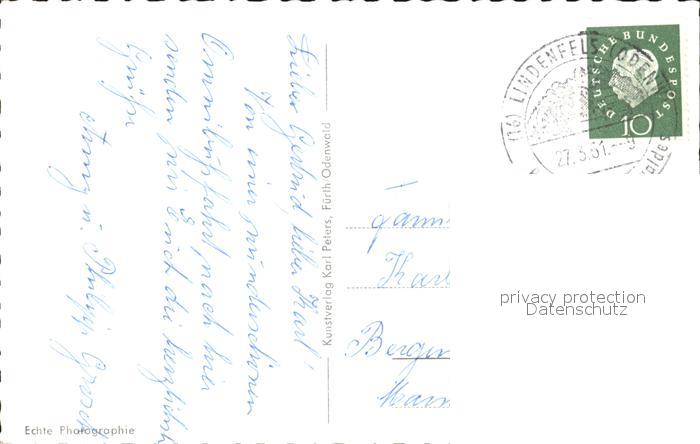 Lieber Gertrud, lieber Karl!
Von einer wunderschönen
Omnibusfahrt nach hier
senden wir Euch die herzlichsten
Grüße
u.
Kunstverlag Karl Peters, Fürth/Odenwald
Echte Photographie
(16) LINDENFELS · ODENW
27.3.61.-9
waldes
DEUTSCHE BUNDESPOST
10
Fam
Karl
Bergen
privacy protection
Datenschutz